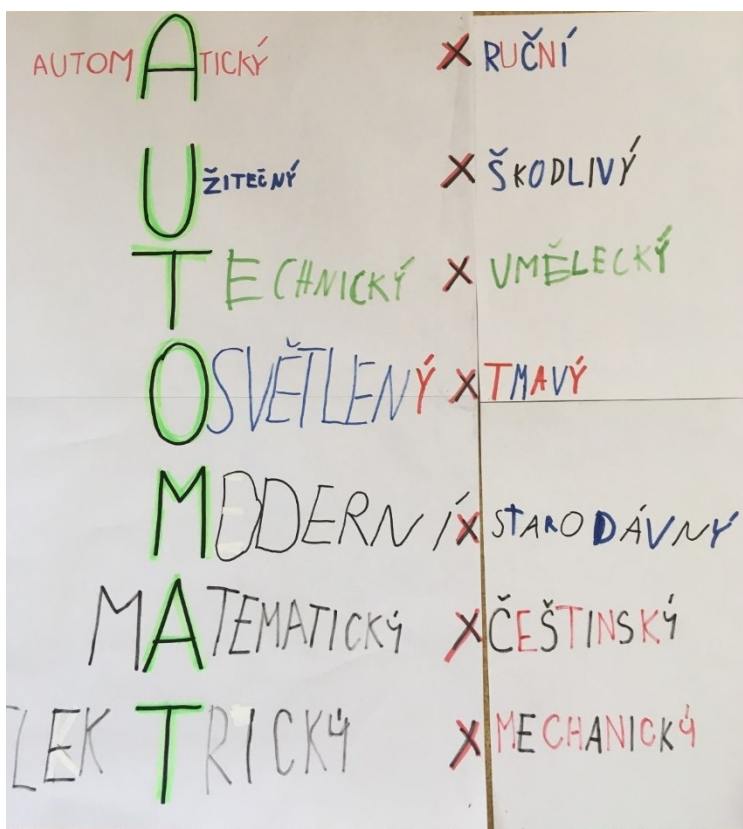 AUTOMATICKÝ X RUČNÍ
UŽITEČNÝ X ŠKODLIVÝ
TECHNICKÝ X UMĚLECKÝ
OSVĚTLENÝ X TMAVÝ
MODERNÍ X STARODÁVNÝ
MATEMATICKÝ X ČEŠTINSKÝ
LEKTRICKÝ X MECHANICKÝ